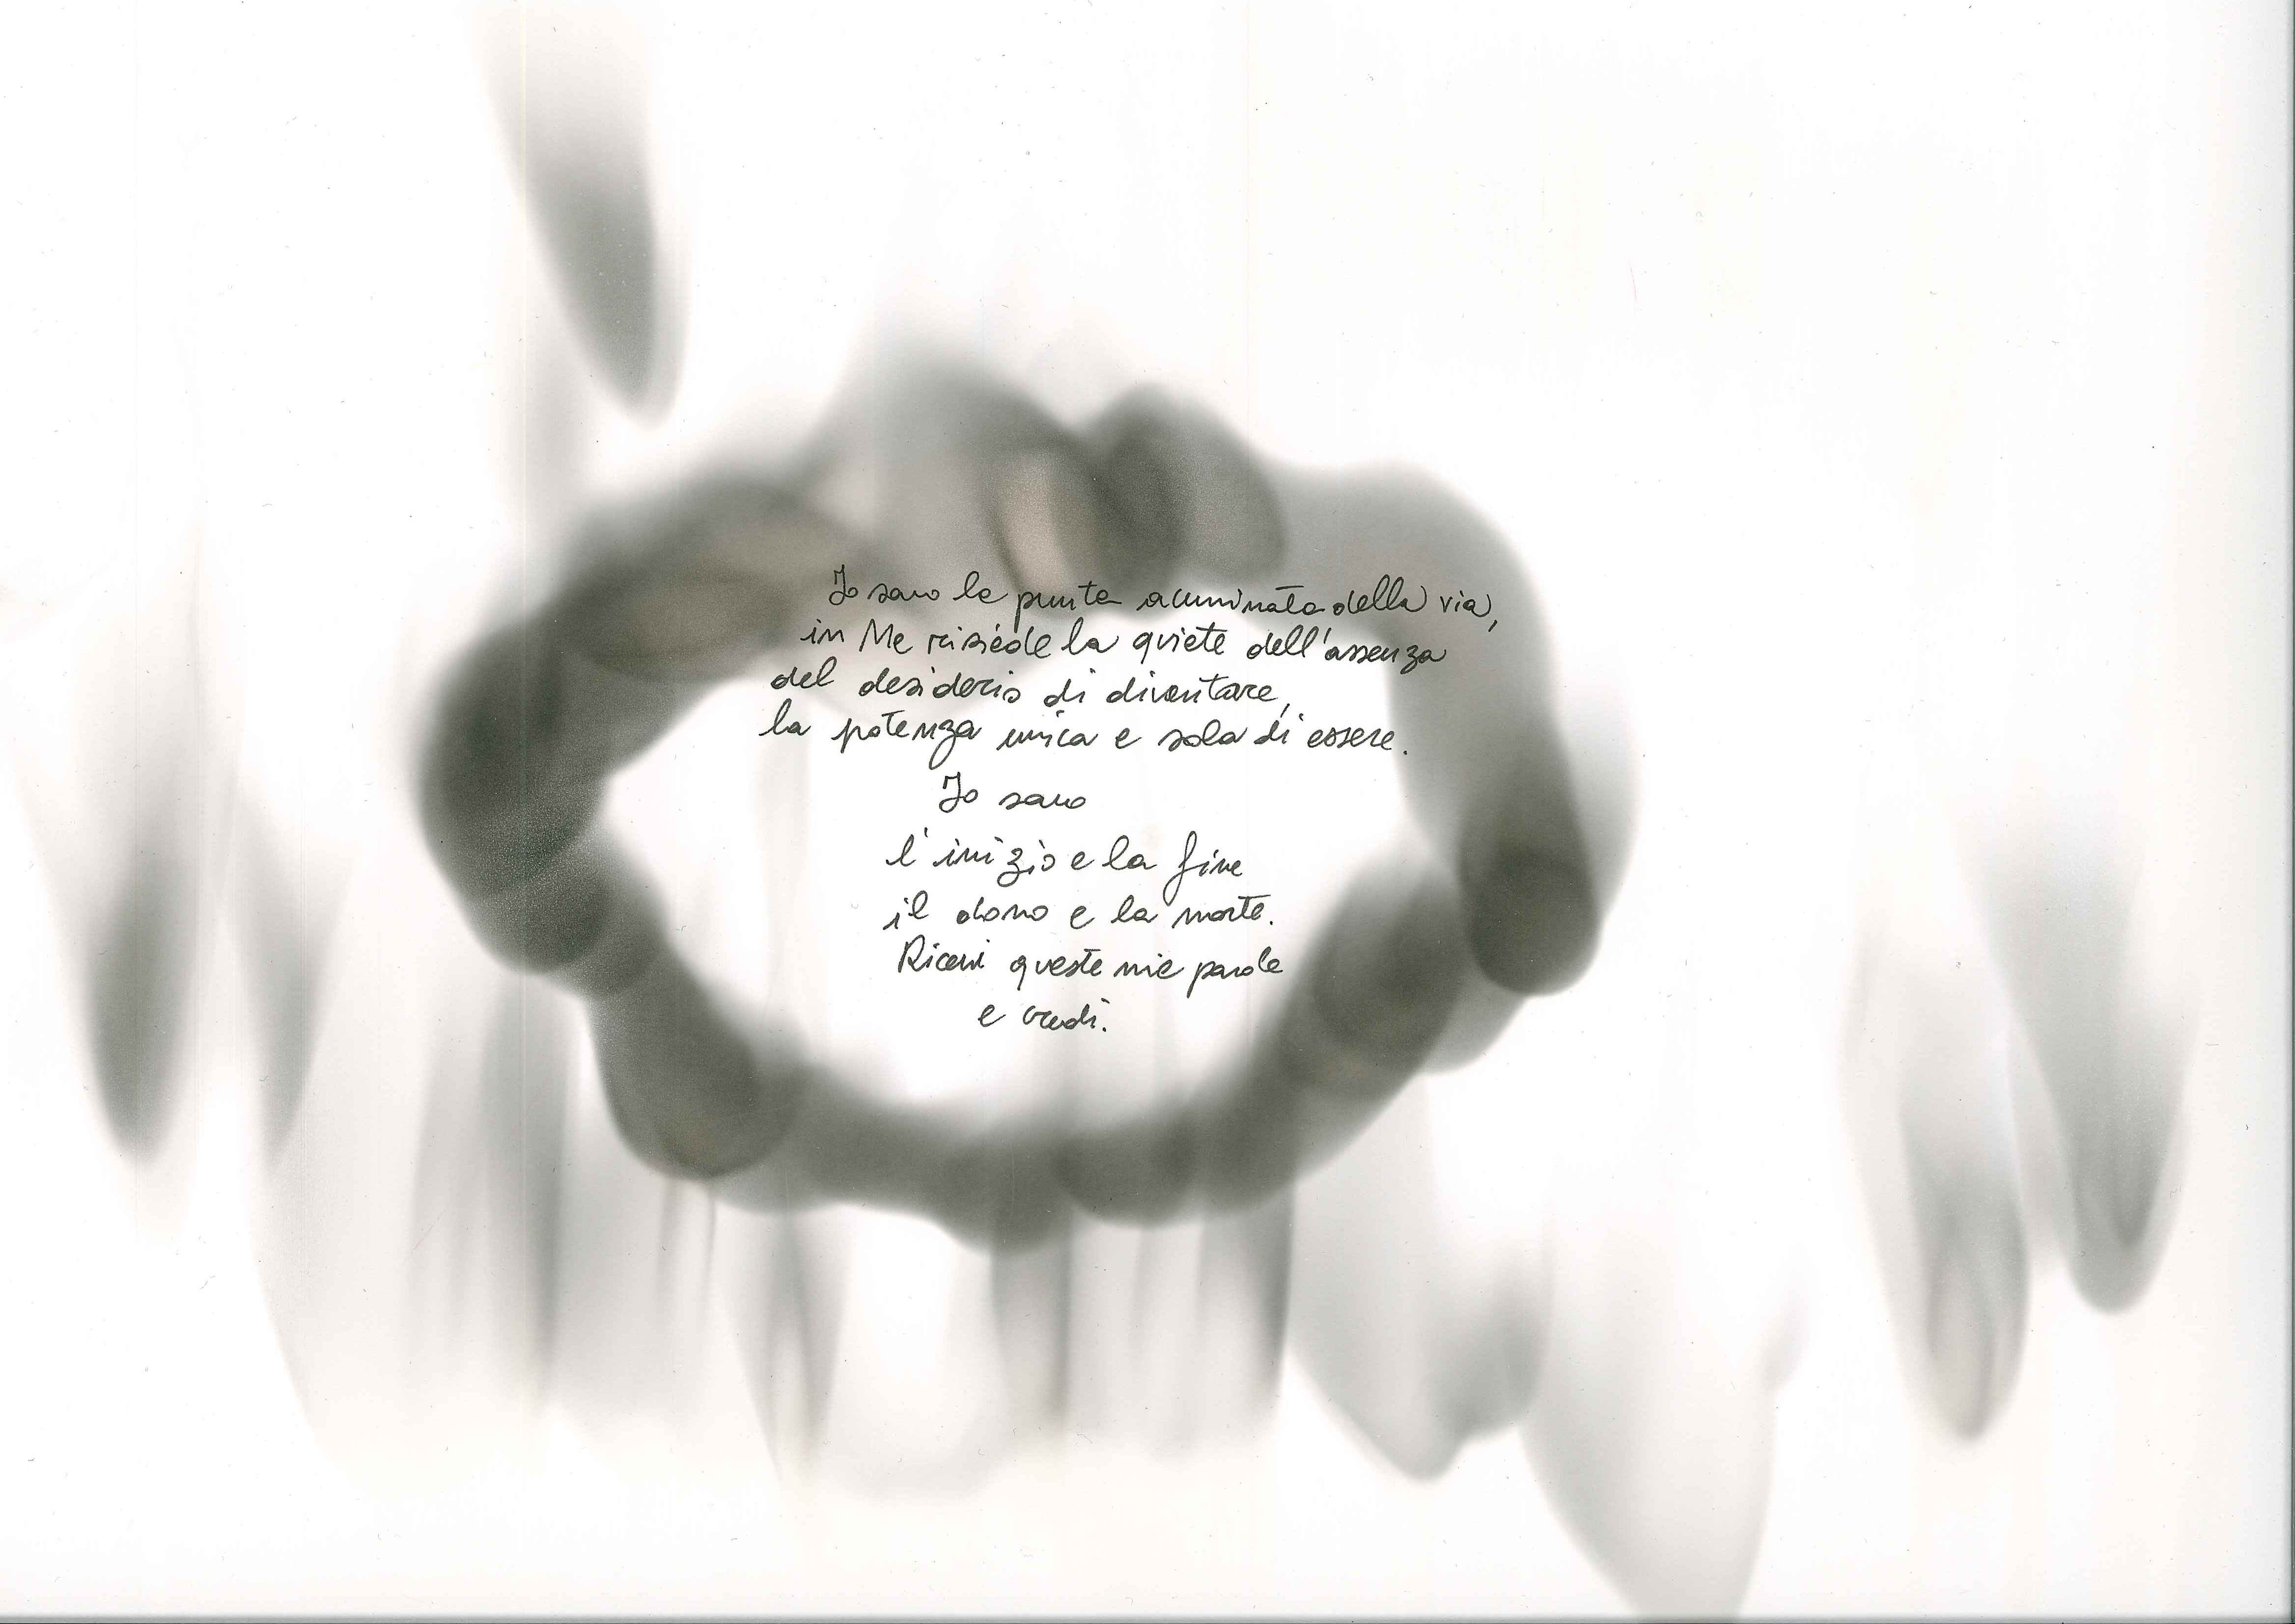 Io sarò la punta acuminata della via,
in Me risiede la quiete dell'assenza
del desiderio di diventare,
la potenza unica e sola di essere.
Io sarò
l'inizio e la fine
il dono e la morte.
Ricevi queste mie parole
e credi.